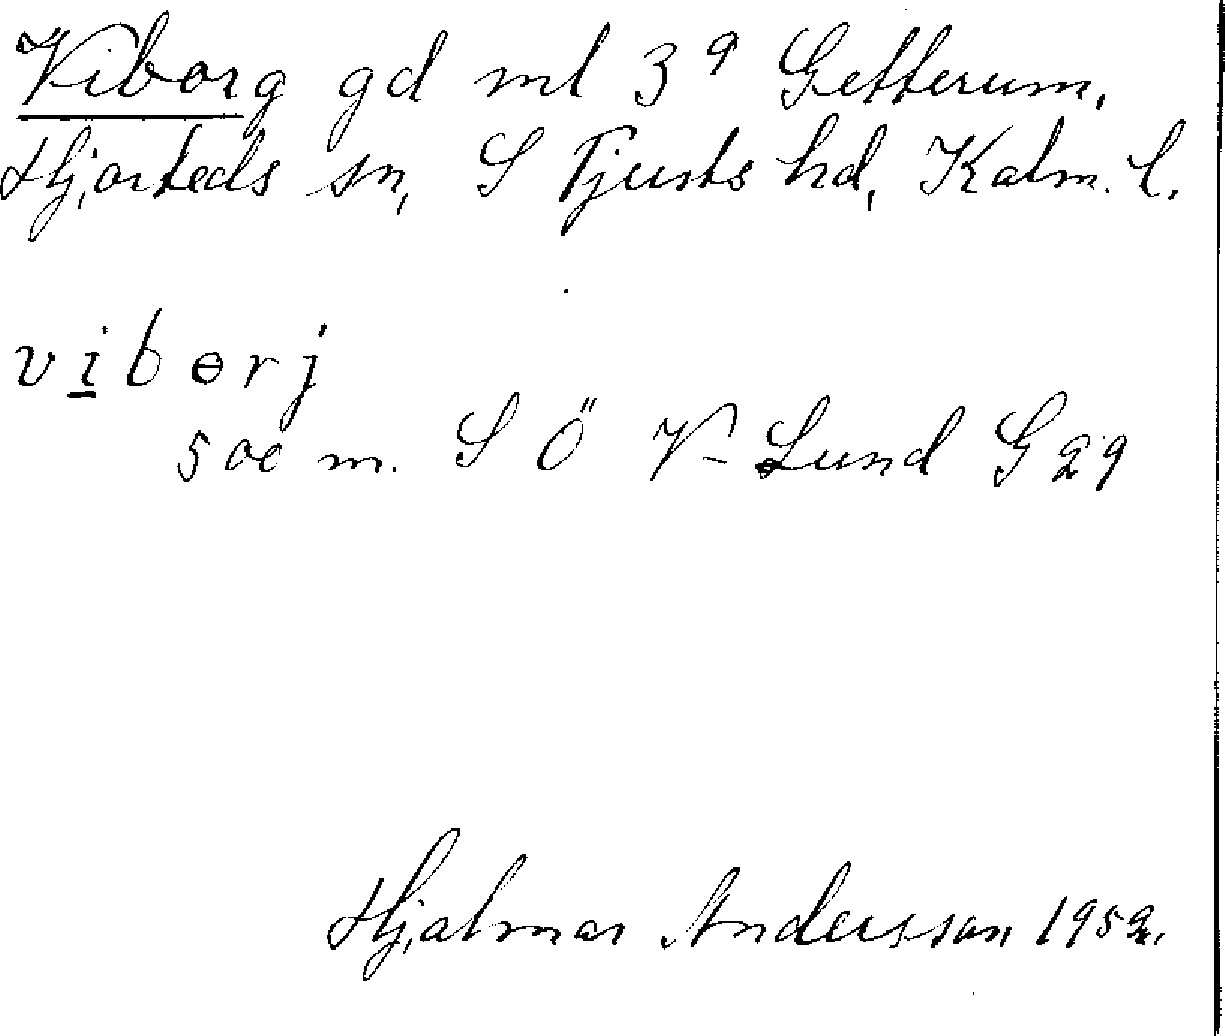 Viborg gd ml 3⁹ Getterum,
Hjorteds sn, S Tjusts hd, Kalm. l.
v i b ɵ r j
500 m. S Ö V Lund G 29
Hjalmar Andersson 1952.